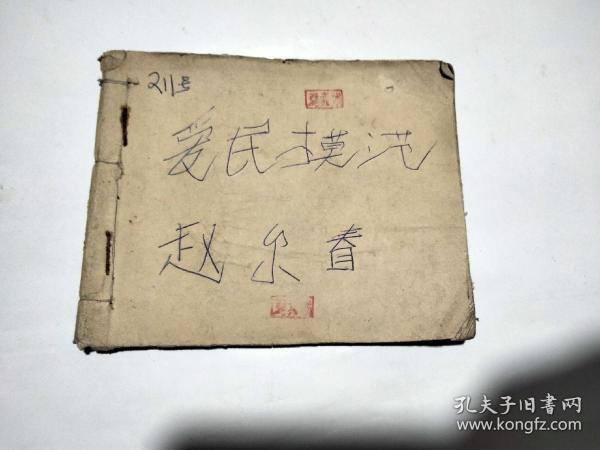 211号
爱民模范
赵尔春
孔夫子旧书网
www.kongfz.com